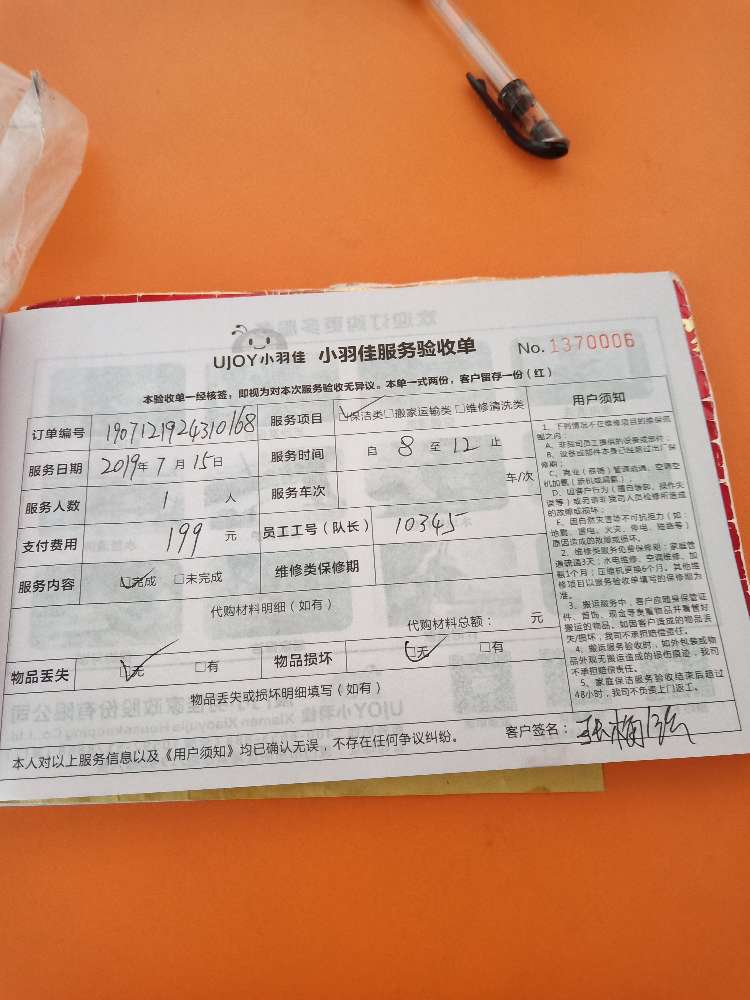 UJOY小羽佳 小羽佳服务验收单 No. 1370006
本验收单一经核签，即视为对本次服务验收无异议。本单一式两份，客户留存一份（红）
订单编号 1907121924310168 服务项目 ☑保洁类□搬家运输类□维修清洗类
服务日期 2019年7月15日 服务时间 自 8 至 12 止
服务人数 1 人 服务车次 车/次
支付费用 199 元 员工工号（队长） 10345
服务内容 ☑完成 □未完成 维修类保修期
代购材料明细（如有）
代购材料总额： 元
物品丢失 ☑无 □有 物品损坏 ☑无 □有
物品丢失或损坏明细填写（如有）
本人对以上服务信息以及《用户须知》均已确认无误，不存在任何争议纠纷。 客户签名：
用户须知
1、下列情况不在维修项目的维保范
围之内：
A、非我司员工提供的设备或部件；
B、设备或部件本身已经超过出厂保
修期；
C、商业（商铺）管道疏通、空调空
机加氟（新机或漏氟）；
D、因客户行为（擅自修卸、操作失
误等）或另请非我司人员检修所造成
的故障或损坏；
E、因自然灾害等不可抗拒力（如：
地震、雷电、火灾、停电、短路等）
原因造成的故障或损坏。
2、维修类服务免费保修期：家庭管
道疏通3天；水电维修、空调维修、加
氟1个月；压缩机更换6个月。其他维
修项目以服务验收单填写的保修期为
准。
3、搬运服务中，客户应随身保管证
件、首饰、现金等贵重物品并看管好
搬运的物品。如因客户造成的物品丢
失/损坏，我司不承担赔偿责任。
4、搬运服务验收时，如外包装或物
品外观无搬运造成的损伤痕迹，我司
不承担赔偿责任。
5、家庭保洁服务验收结束后超过
48小时，我司不负责上门返工。